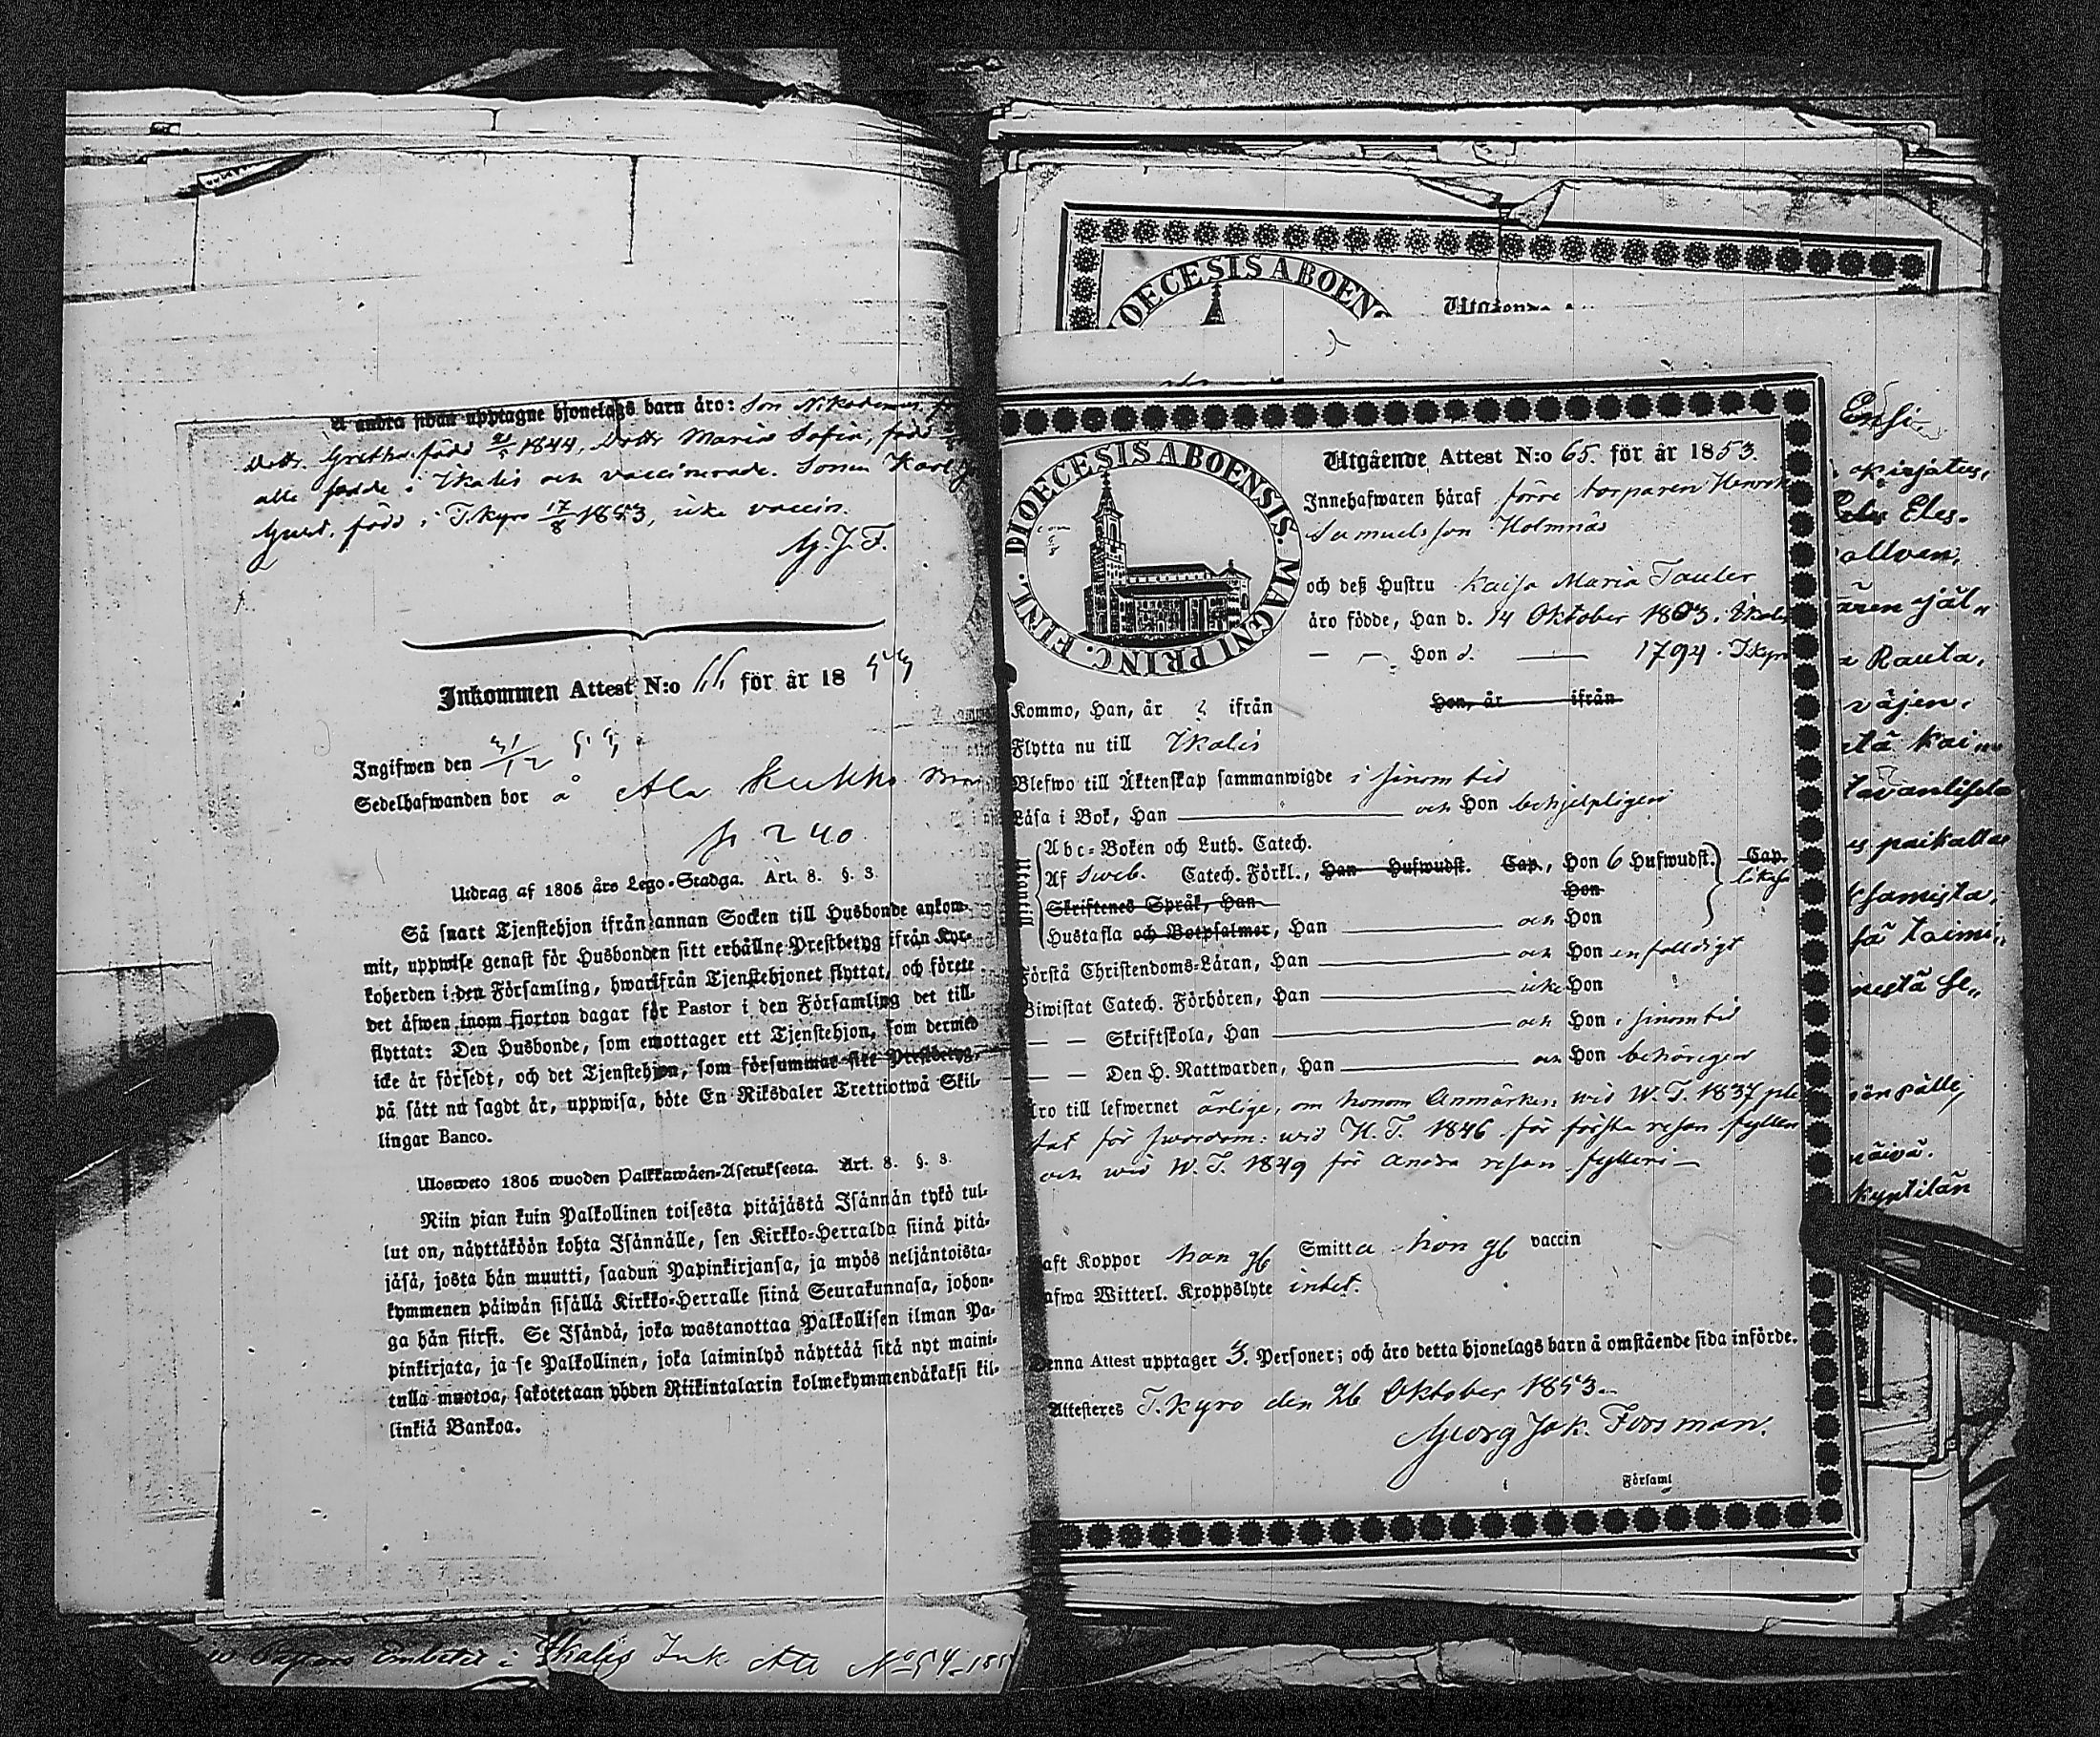 Å andra sidan upptagne hjonelags barn äro: Son Nikodemus,
Dottr. Gretha född 21/5 1844, Dottr Maria Sofia, född
alle födde i Ikalis och vaccinerade. Sonen Karl
Gust. född i T.kyro 17/8 1853, icke vaccin.
G. J. F.
Inkommen Attest N:o 66 för år 1853
Ingifwen den 31/12 53
Sedelhafwanden bor å Ala Kukko
p. 240.
Utdrag af 1805 års Lego-Stadga. Art. 8. §. 3.
Så snart Tjenstehjon ifrån annan Socken till Husbonde ankom-
mit, uppwise genast för Husbonden sitt erhållne Prestbetyg ifrån Kyr-
koherden i den Församling, hwarifrån Tjenstehjonet flyttat, och förete
det äfwen inom fjorton dagar för Pastor i den Församling det till-
flyttat: Den Husbonde, som emottager ett Tjenstehjon, som dermed
icke är försedt, och det Tjenstehjon, som försummar sitt Prestbetyg,
på sätt nu sagdt är, uppwisa, böte En Riksdaler Trettiotwå Skil-
lingar Banco.
Ulosweto 1805 wuoden Palkkawäen-Asetuksesta. Art. 8. §. 3.
Niin pian kuin Palkollinen toisesta pitäjästä Isännän tykö tul-
lut on, näyttäköön kohta Isännälle, sen Kirkko-Herralda siinä pitä-
jäsä, josta hän muutti, saadun Papinkirjansa, ja myös neljäntoista-
kymmenen päiwän sisällä Kirkko-Herralle siinä Seurakunnasa, johon-
ga hän siirsi. Se Isändä, joka wastanottaa Palkollisen ilman Pa-
pinkirjata, ja se Palkollinen, joka laiminlyö näyttää sitä nyt maini-
tulla muotoa, sakotetaan yhden Riikintalarin kolmekymmendäkaksi kil-
linkiä Bankoa.
Pastors Embetet i Ikalis Ink. Att No 54 185
DIOECESIS ABOENS
Utgående
DIOECESIS ABOENSIS. MAGNI PRINC. FINL.
Utgående Attest N:o 65. för år 1853.
Innehafwaren häraf förre torparen Henrik
Samuelsson Holmnäs
och deß Hustru Kaisa Maria Tauler
äro födde, Han d. 14 Oktober 1803. Ikalis
— — Hon d. — 1794. T.kyro
Kommo, Han, år ? ifrån Hon, år ifrån
Flytta nu till Ikalis
Blefwo till Äktenskap sammanwigde i sinom tid
Läsa i Bok, Han — och Hon behjelpligen
Abc-Boken och Luth. Catech.
Af Sveb. Catech. Förkl., Han Hufwudst. Cap., Hon 6 Hufwudst. Cap.
Skriftenes Språk, Han Hon
Hustafla och Botpsalmer, Han — och Hon
Förstå Christendoms-Läran, Han — och Hon enfalldigt
Biwistat Catech. Förhören, Han — icke Hon
— — Skriftskola, Han — och Hon i sinom tid
— — Den H. Nattwarden, Han — och Hon behörigen
Äro till lefwernet ärlige, om honom Anmärkes: wid W. T. 1837 pli
tat för swordom: wid H. T. 1846 för första resan fylleri
och wid W. T. 1849 för andra resan fylleri —
Haft Koppor han gb Smitta hon gb vaccin
Hafwa Witterl. Kroppslyte intet.
Denna Attest upptager 3. Personer; och äro detta hjonelags barn å omstående sida införde.
Attesteres T.kyro den 26 Oktober 1853.
Georg Jak. Forsman.
i Församl
Ensi
Rauta,
väjen,
kai
paikallas
toimi
päivä.
kyntilän